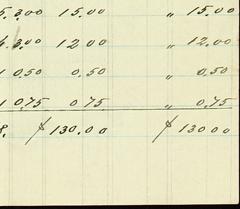 5. 3.00 15.00 " 15.00
4. 3.00 12 00 " 12.00
1 0.50 0.50 " 0.50
1 0.75 0 75 " 0.75
8. $ 130.00 $ 130 00